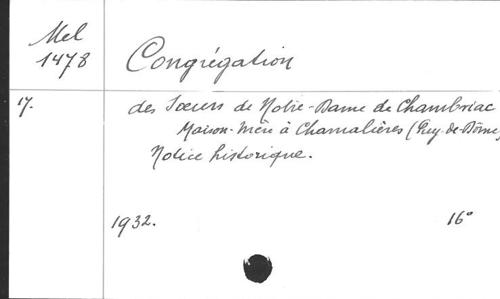 Mel
1478
Congrégation
17.
des Sœurs de Notre-Dame de Chambriac
Maison-mère à Chamalières (Puy-de-Dôme)
Notice historique.
1932. 16°